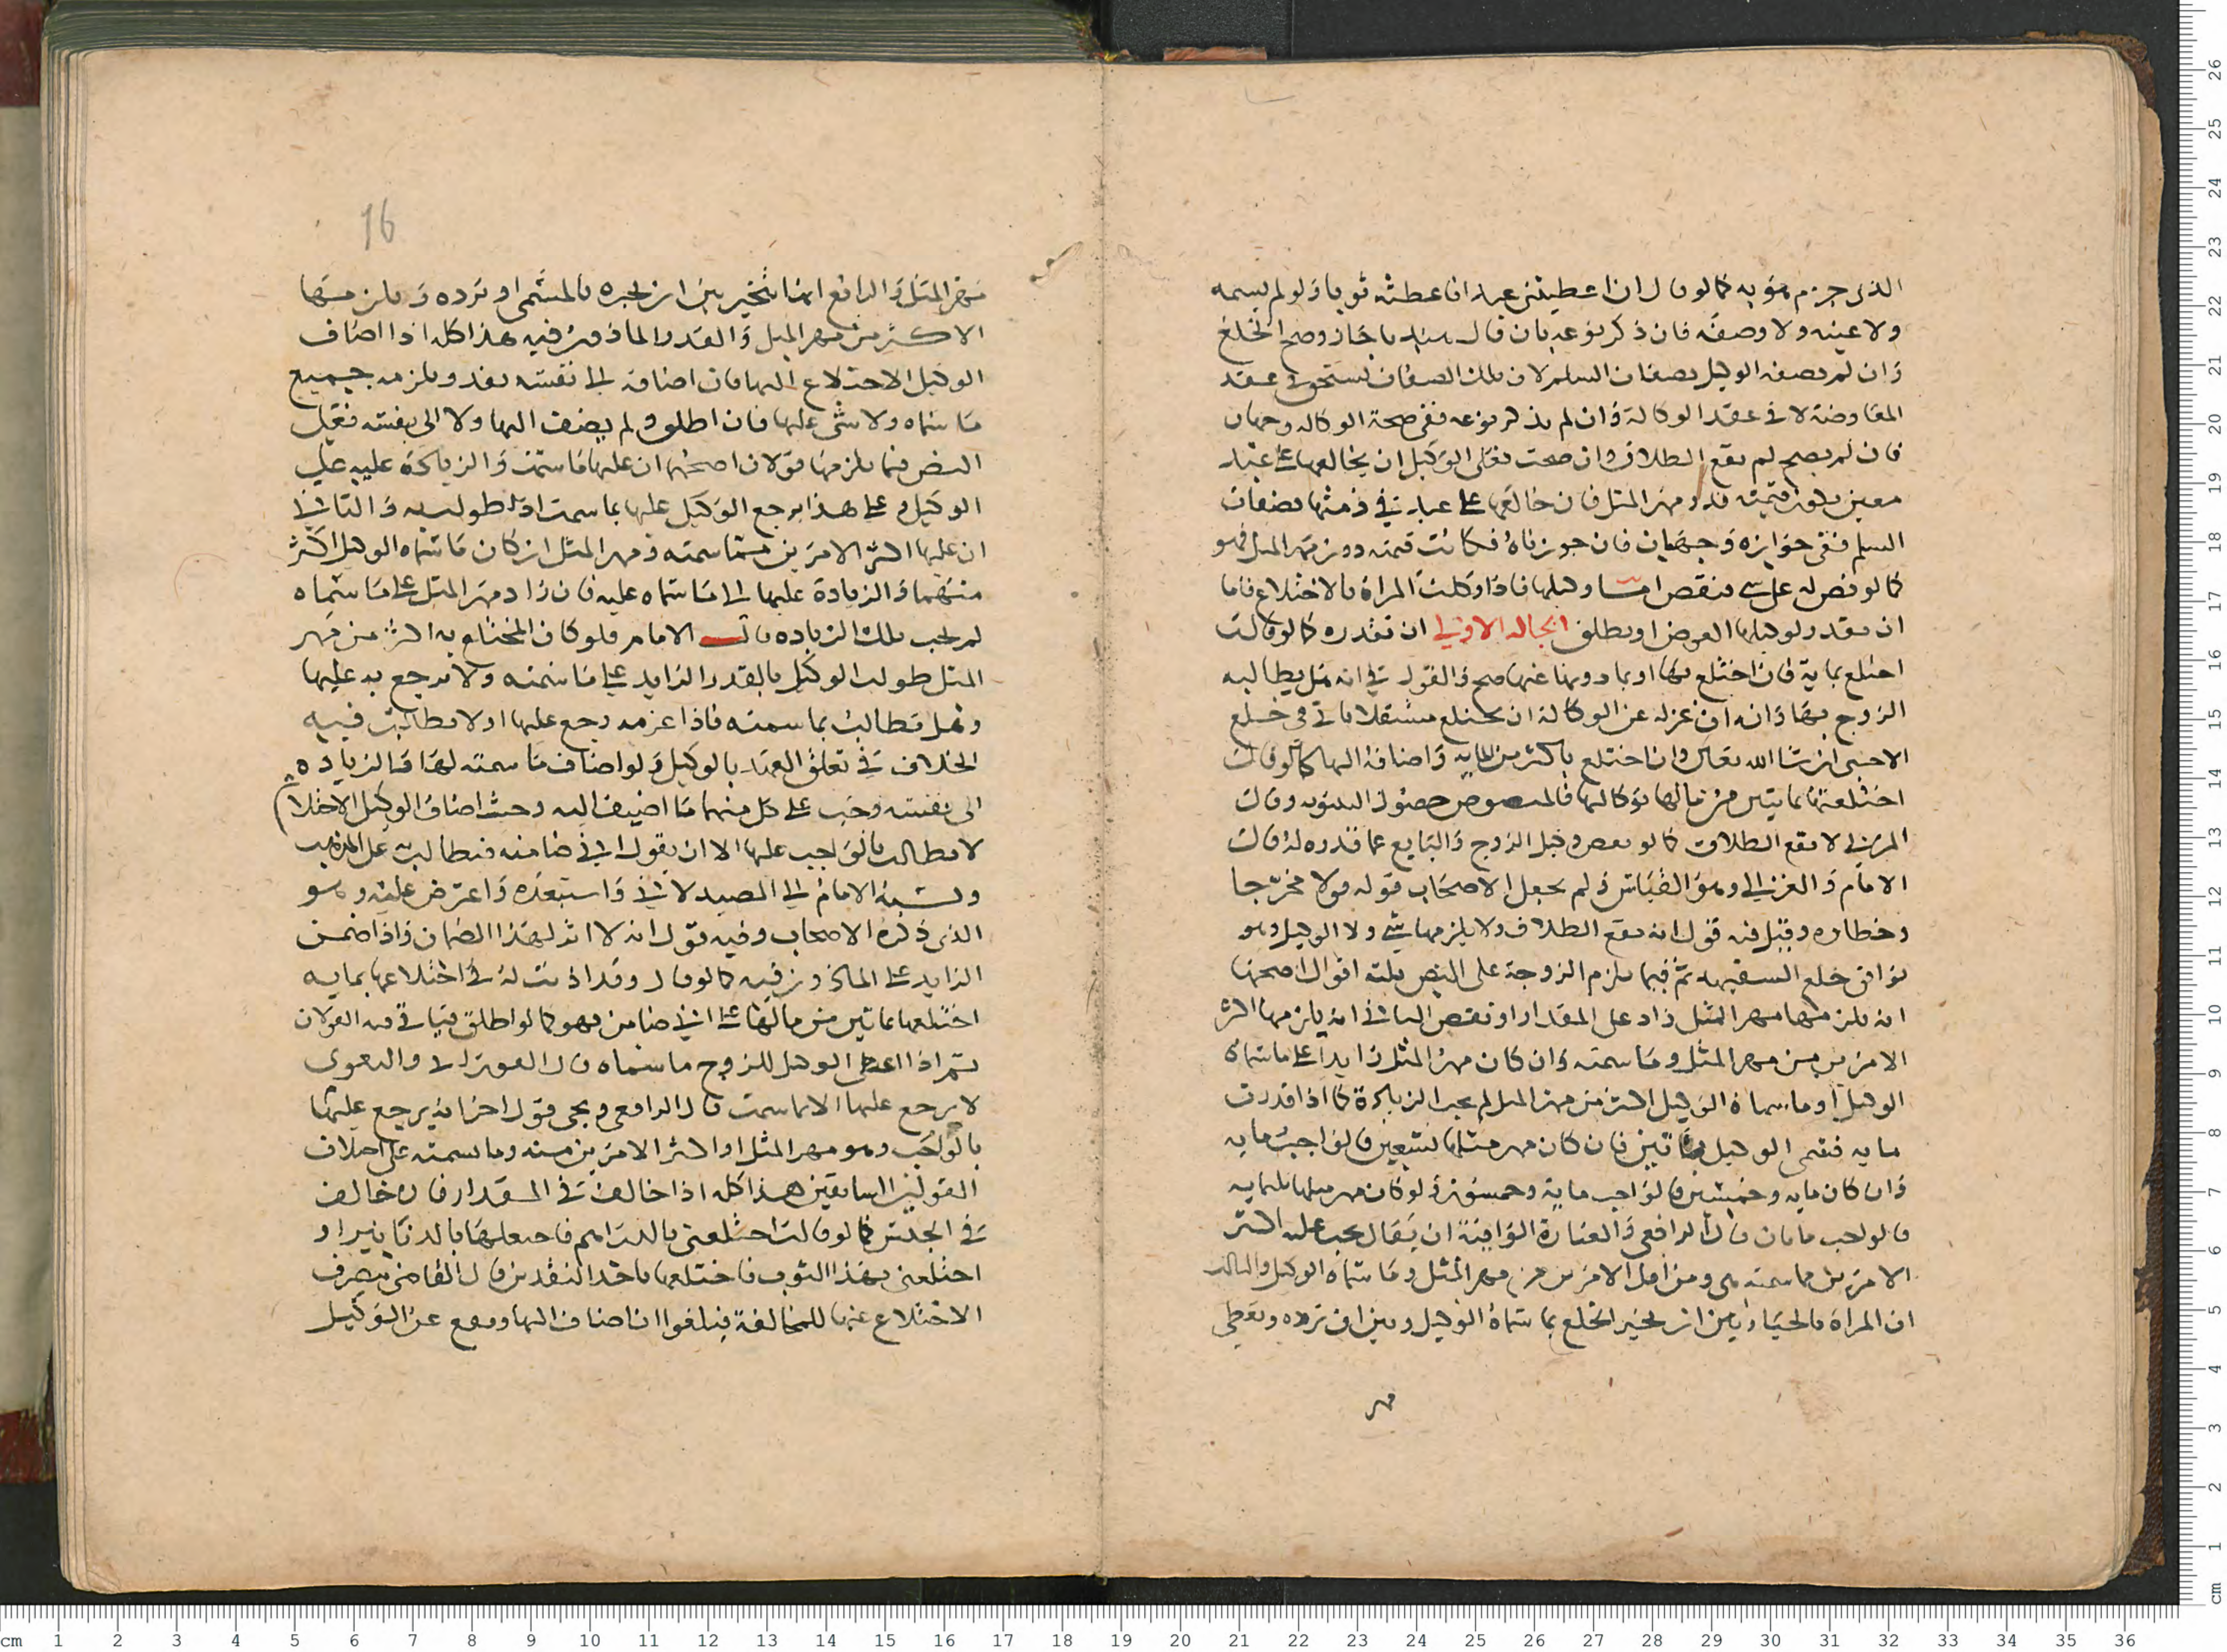 الذى جزم هو به كما لو قال ان اعطيتنى عبدا فاعطته ثوبا ولو لم يسمه
ولا عينه ولا وصفه فان ذكر نوعه بان قال باجاز وصح الخلع
وان لم يصفه الوكيل بصفات السلم لان تلك الصفات تستحق فى عقد
المفاوضة لا فى عقد الوكالة وان لم يذكر نوعه ففى صحة الوكاله وجهان
فان لم يصح لم يقع الطلاق وان صحت فعلى الوكيل ان يخالعها على عبد
معين قيمته قدر مهر المثل فان خالعها على عبد فى ذمتها بصفات
السلم ففى جوازه وجهان فان جوزناه فكانت قيمته دون مهر المثل فهو
كما لو نص له على شى فنقص اما وكيلها فاذا وكلت المراة بالاختلاع فاما
ان تقدر لوكيلها العوض او يطلق الحاله الاولى ان تقدره كما لو قالت
اختلع بماية فان اختلع بها او بما دونها عنها صح والقول فى انه هل يطالبه
الزوج بها وانه ان عزله عن الوكالة ان يختلع مستقلا ياتى فى خلع
الاجنبى ان شا الله تعالى وان اختلع باكثر من الماية واضافه اليها كما لو قال
اختلعتها بمايتين من مالها بوكالتها فالمنصوص حصول البينونه وقال
المزنى لا يقع الطلاق كما لو نقص وكيل الزوج والبايع عما قدره له قال
الامام والغزالى وهو القياس ولم يجعل الاصحاب قوله قولا مخرجا
وخطاوه وقيل فيه قول انه يقع الطلاق ولا يلزمها شى ولا الوكيل وهو
يوافق خلع السفيهه ثم فيما يلزم الزوجة على النص ثلثة اقوال اصحها
انه يلزمها مهر المثل زاد على المقدار او نقص الثانى انه يلزمها اكثر
الامرين من مهر المثل وما سمته وان كان مهر المثل زايدا على ما سماه
الوكيل او ما سماه الوكيل اكثر من مهر المثل لم تجب الزيادة كما اذا قدرت
مايه فسمى الوكيل مايتين فان كان مهر مثلها تسعين فالواجب مايه
وان كان مايه وخمسين فالواجب ماية وخمسون ولو كان مهر مثلها ثلثمايه
فالواجب مايتان قال الرافعى والعبارة الوافية ان يقال يجب عليه اكثر
الامرين مما سمته هى ومن اقل الامرين من مهر المثل وما سماه الوكيل والثالث
ان المراة بالخيار بين ان تجيز الخلع بما سماه الوكيل وبين ان ترده وتعطى
مهر
16
مهر المثل والرابع انها تتخير بين ان تجيزه بالمسمى او ترده ويلزمها
الاكثر من مهر المثل والقدر الماذون فيه هذا كله اذا اضاف
الوكيل الاختلاع اليها فان اضافه الى نفسه نفذ ويلزمه جميع
ما سماه ولا شى عليها فان اطلق ولم يضف اليها ولا الى نفسه فعلى
النص فيما يلزمها قولان اصحهما ان عليها ما سمت والزيادة عليه على
الوكيل وعلى هذا يرجع الوكيل عليها بما سمت اذا طولب به والثانى
ان عليها اكثر الامرين مما سمته ومهر المثل ان كان ما سماه الوكيل اكثر
منهما والزيادة عليها الى ما سماه عليه فان زاد مهر المثل على ما سماه
لم تجب تلك الزياده قال الامام فلو كان المختلع به اكثر من مهر
المثل طولب الوكيل بالقدر الزايد على ما سمته ولا يرجع به عليها
وهل تطالب بما سمته فاذا غرمه رجع عليها او لا يطالب فيه
الخلاف فى تعلق العهد بالوكيل ولو اضاف ما سمته لها والزياده
الى نفسه وجب على كل منهما ما اضيف اليه وحيث اضاف الوكيل الاختلا
لا يطالب بالواجب عليها الا ان يقول انى ضامنه فيطالب على المذهب
ونسبه الامام الى الصيدلانى واستبعده واعترض عليه وهو
الذى ذكره الاصحاب وفيه قول انه لا اثر لهذا الضمان واذا ضمن
الزايد على الماذون فيه كما لو قال وقد اذنت له فى اختلاعها بمايه
اختلعها بمايتين من مالها على انى ضامن فهو كما لو اطلق فياتى فيه القولان
ثم اذا اعطى الوكيل للزوج ما سماه قال الغزالى والبغوى
لا يرجع عليها الا بما سمت قال الرافعى ويجى قول اخر انه يرجع عليها
بالواجب وهو مهر المثل او اكثر الامرين منه وما سمته على اختلاف
القولين السابقين هذا كله اذا خالف فى المقدار فان خالف
فى الجنس كما لو قالت اختلعنى بالدراهم فاختلعها بالدنانير او
اختلعنى بهذا الثوب فاختلعها باحد النقدين قال القاضى ينصرف
الاختلاع عنها للمخالفة فيلغوا ان اضاف اليها ووقع عن الوكيل